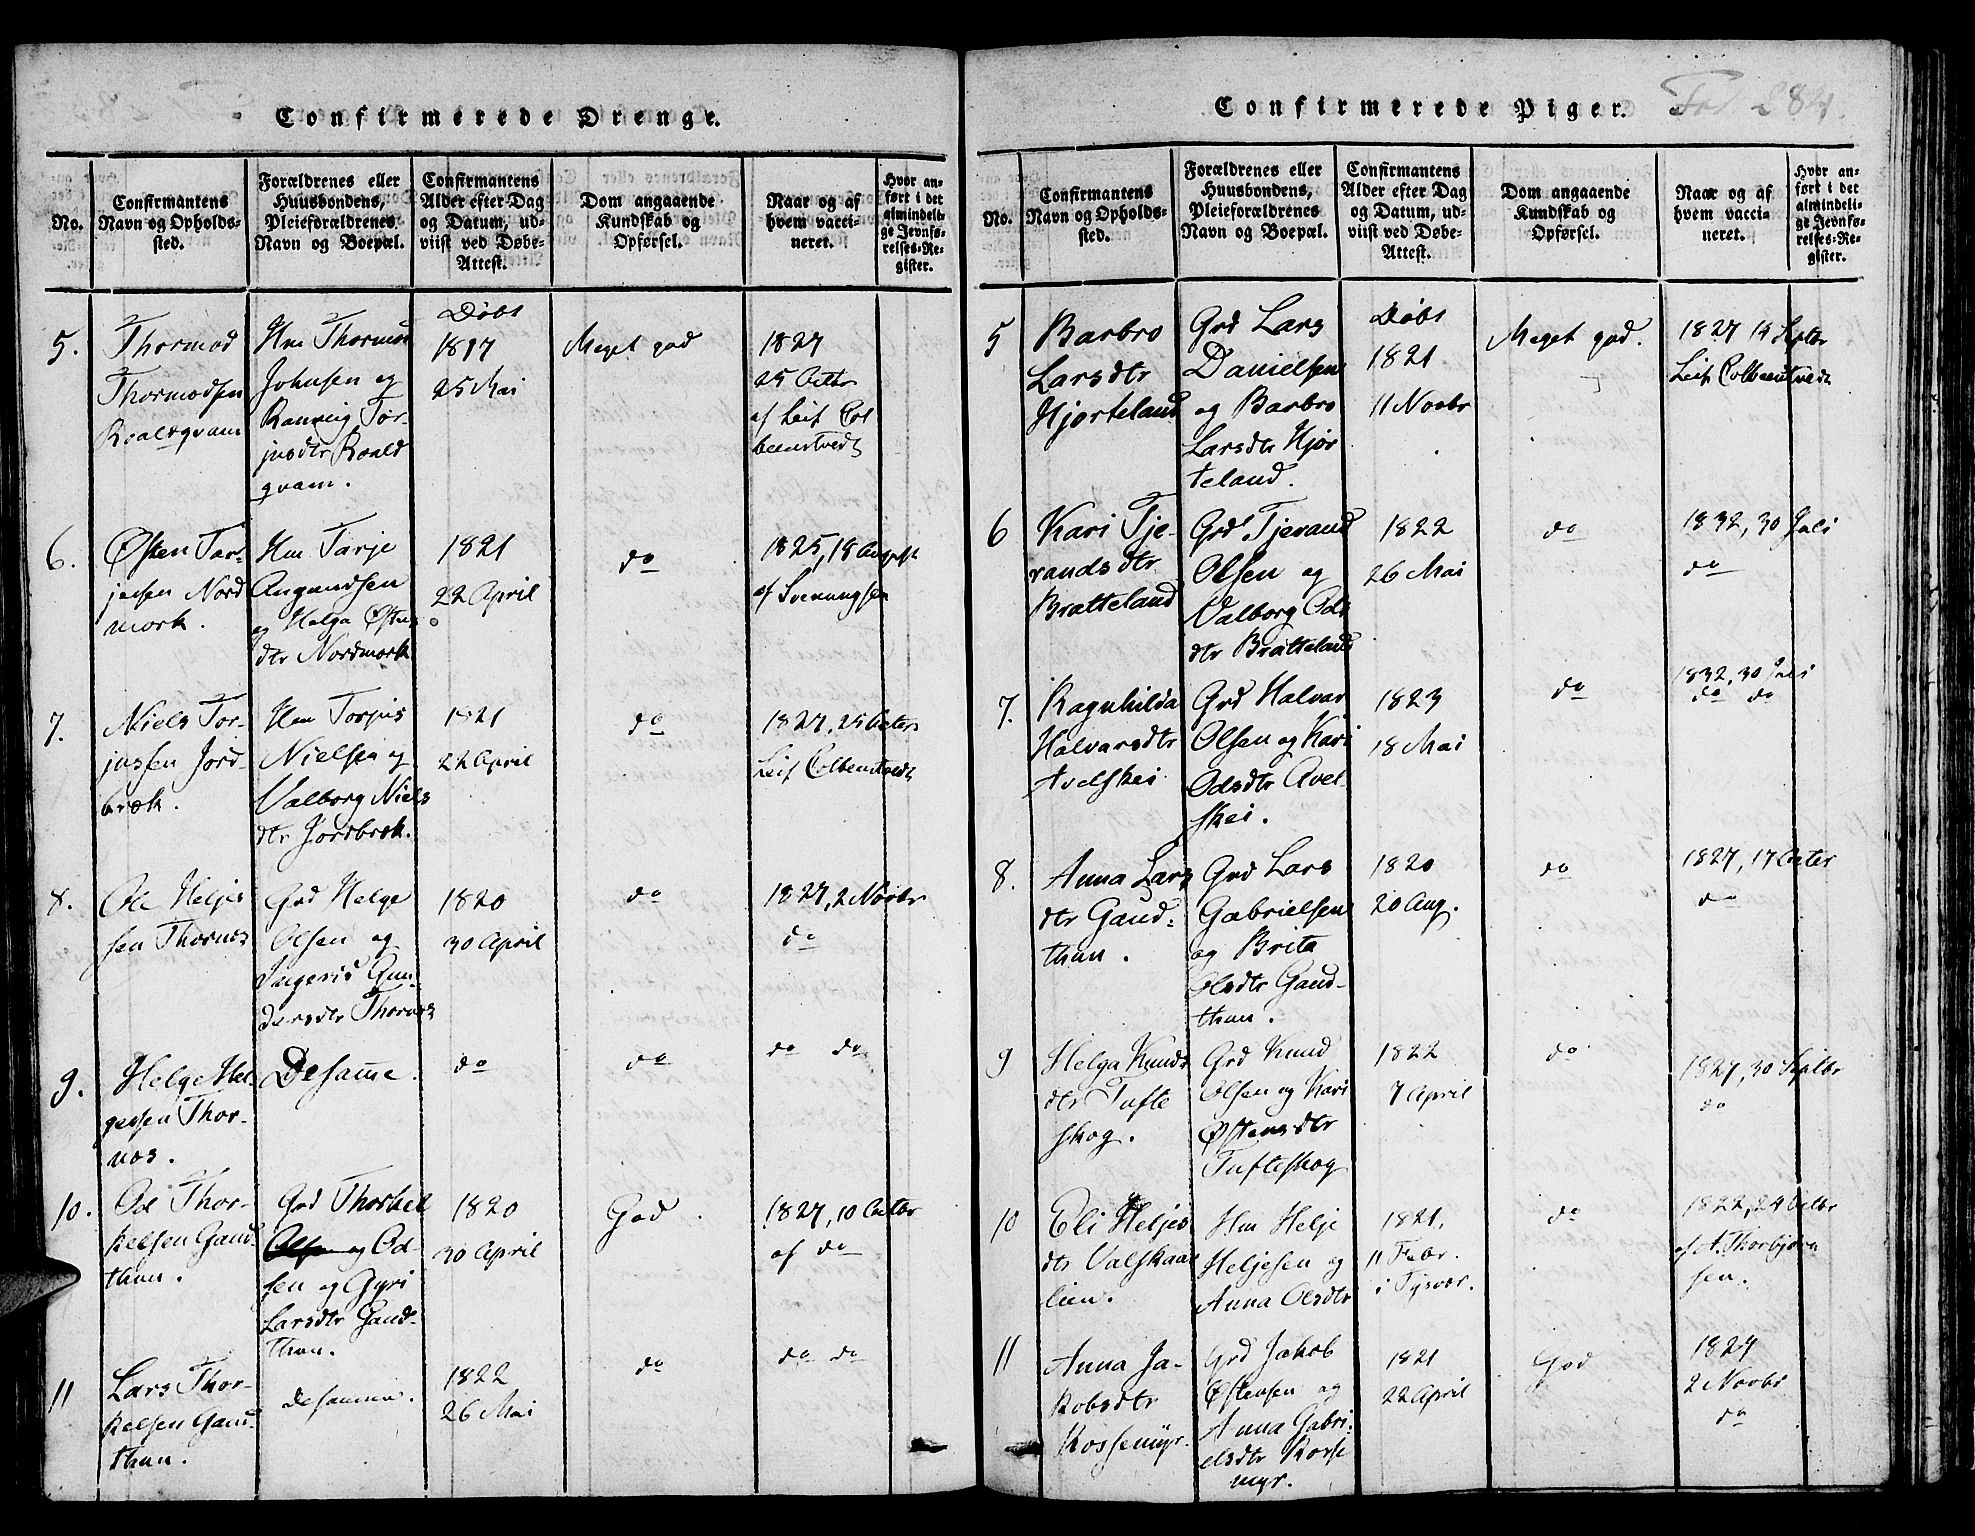 Confirmerede Drenge.
No.
Confirmantens
Navn og Opholds-
sted.
Forældrenes eller
Huusbondens,
Pleieforældrenes
Navn og Boepæl.
Confirmantens
Alder efter Dag
og Datum, ud-
viist ved Døbe-
Attest.
Dom angaaende
Kundskab og
Opførsel.
Naar og af
hvem vacci-
neret.
Hvor an-
ført i det
almindeli-
ge Jevnfø-
relses-Re-
gister.
5.
Thormod
Thormodsen
Roalsqvam
Hm Thormod
Johnsen og
Rannig Tor-
jusdtr Roald
qvam.
Døbt
1817
25 Mai
Meget god
1827
25 Octbr
af Leif Col
beenstvedt
6.
Østen Tar-
jesen Nord
mork.
Hm Tarje
Aagundsen
og Helga Østens
dtr Nordmork
1821
22 April
do
1825, 18 August
af Svenungsen
7.
Niels Tor-
jussen Jord-
bræk.
Hm Torjus
Nielsen og
Valborg Niels
dtr Jordbræk.
1821
22 April
do
1827, 25 Octbr
Leif Colbenstvedt
8.
Ole Heljes
sen Thornes
Grd Helge
Olsen og
Ingeris Gun-
dersdtr Thornes
1820
30 April
do
1827, 2 Novbr
do
9.
Helge Hel
gessen Thor-
nes.
Desamme.
do
do
do do
10.
Od Thor-
kelsen Gaud-
thun.
Grd Thorkel
Olsen og Od-
sen og Gyri
Larsdtr Gaud-
thun.
1820
30 April
God.
1827, 10 Octbr
af do
11
Lars Thor-
kelsen Gaud
thun.
desamme.
1822
26 Mai
do
do do
Confirmerede Piger.
Fol 284.
No.
Confirmantens
Navn og Opholds-
sted.
Forældrenes eller
Huusbondens,
Pleieforældrenes
Navn og Boepæl.
Confirmantens
Alder efter Dag
og Datum, ud-
viist ved Døbe-
Attest.
Dom angaaende
Kundskab og
Opførsel.
Naar og af
hvem vacci-
neret.
Hvor an-
ført i det
almindeli-
ge Jevnfø-
relses-Re-
gister.
5
Barbro
Larsdtr
Hjorteland
Grd Lars
Danielsen
og Barbro
Larsdtr Hjør
teland.
Døbt
1821
11 Novbr
Meget god.
1827 14 Septbr
Leif Colbeenstvedt
6
Kari Tje-
randsdtr
Bratteland
Grd Tjerand
Olsen og
Valborg Ods
dtr Bratteland
1822
26 Mai
do
1832, 30 Juli
do
7.
Ragnhilda
Halvarsdtr
Avelskei
Grd Halvar
Olsen og Kari
Odsdtr Avel-
skei.
1823
18 Mai
do
1832, 30 Juli
do do
8.
Anna Lars
dtr Gaud-
thun.
Grd Lars
Gabrielsen
og Brita
Olsdtr Gaud-
thun.
1820
20 Aug.
do
1827, 17 Octbr
do
9
Helga Knuds
dtr Tufte
skog.
Grd Knud
Olsen og Kari
Østensdtr
Tufteskog
1822
7 April
do
1827, 30 Septbr
do
10
Eli Heljes
dtr Valskaar
lien.
Hm Helje
Heljesen og
Anna Olsdtr
1821,
11 Febr.
i Tysvær.
do
1822, 24 Octbr
af A. Thorbjørn
sen.
11
Anna Ja-
kobsdtr
Kossemyr.
Grd Jakob
Østensen og
Anna Gabri-
elsdtr Kosse
myr.
1821
22 April
God
1827
2 Novbr
do